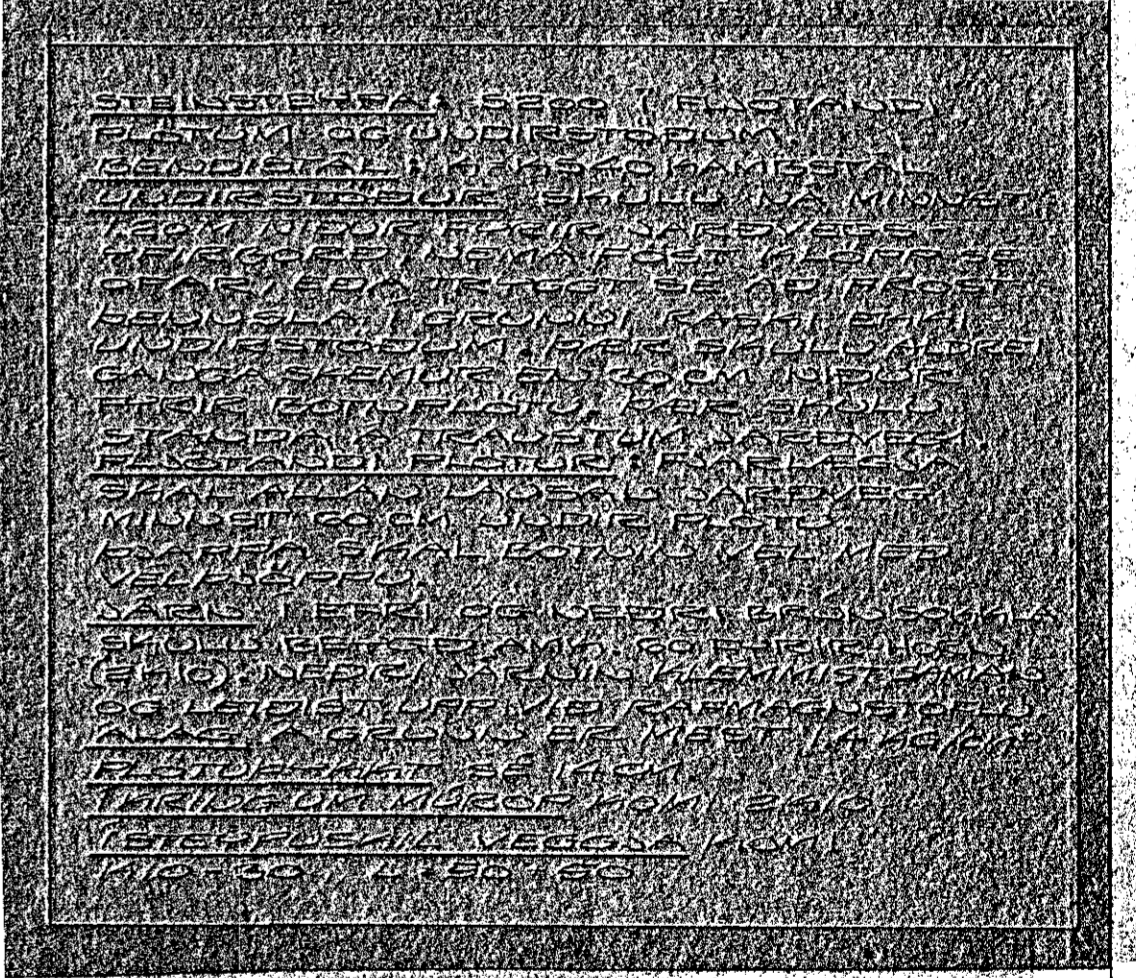 STEINSTEYPA: S200 Í FLJÓTANDI
PLÖTUM OG UNDIRSTÖÐUM
BENDISTÁL: KS40 KAMBSTÁL
UNDIRSTÖÐUR: SKULU NÁ MINNST
120M NIÐUR FYRIR JARÐVEGS-
YFIRBORÐ, NEMA FÖST KLÖPP SÉ
OFAR, EÐA TRYGGT SÉ AÐ FROST-
ÞENNSLA Í GRUNNI RASKI EKKI
UNDIRSTÖÐUM. ÞÆR SKULU ALDREI
GANGA SKEMUR EN 60 CM NIÐUR
FYRIR BOTNPLÖTU. ÞÆR SKULU
STANDA Á TRAUSTUM JARÐVEGI.
FLJÓTANDI PLÖTUR: FJARLÆGJA
SKAL ALLAN JARÐVEG
MINNST 60 CM UNDIR PLÖTU.
ÞJAPPA SKAL BOTNINN VEL MEÐ
VÉLÞJÖPPU.
JÁRN Í EFRI OG NEÐRI BRÚN SÖKKLA
SKULU BEYGÐ 60 FYRIR HORN
(2K10). NEÐRI JÁRNIN KLEMMIST SAMAN
OG LEIÐIST UPP VIÐ RAFMAGNSTÖFLU
ÁLAG Á GRUNN ER MEST 1.4 KG/CM²
PLÖTUÞYKKT SÉ 14 CM.
KRINGUM MÚROP KOMI 2K10
Í STEYPUSKIL VEGGJA KOMI
K10-30, L=50+50